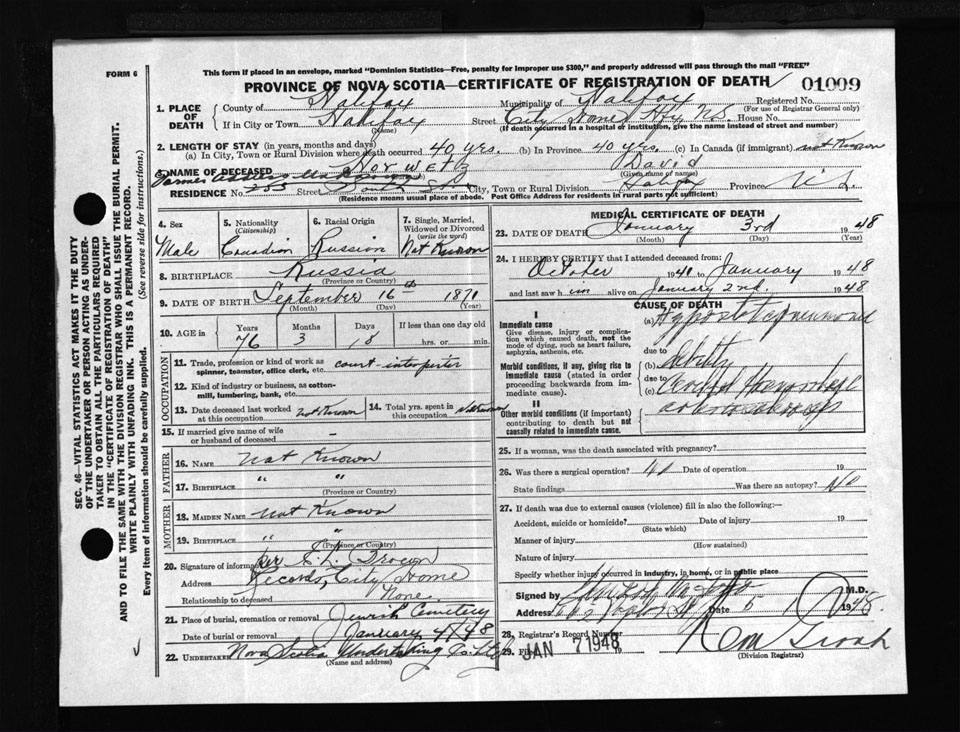 FORM 6
This form if placed in an envelope, marked "Dominion Statistics—Free, penalty for improper use $300," and properly addressed will pass through the mail "FREE"
PROVINCE OF NOVA SCOTIA—CERTIFICATE OF REGISTRATION OF DEATH
01009
1. PLACE OF DEATH
County of Halifax Municipality of Halifax Registered No.
(For use of Registrar General only)
If in City or Town Halifax Street City Home Hfx N.S. House No.
(Name) (If death occurred in a hospital or institution, give the name instead of street and number)
2. LENGTH OF STAY (in years, months and days)
(a) In City, Town or Rural Division where death occurred 40 yrs. (b) In Province 40 yrs. (c) In Canada (if immigrant) not Known
3. NAME OF DECEASED Horwetz David
(Given name or names)
Former address
RESIDENCE No. 255 Street South St. City, Town or Rural Division Halifax Province N.S.
(Residence means usual place of abode. Post Office Address for residents in rural parts not sufficient)
4. Sex
Male
5. Nationality
(Citizenship)
Canadian
6. Racial Origin
Russian
7. Single, Married, Widowed or Divorced
(write the word)
Not Known
8. BIRTHPLACE Russia
(Province or Country)
9. DATE OF BIRTH September 16th 1871
(Month) (Day) (Year)
10. AGE in
Years Months Days If less than one day old
76 3 18 hrs. or min.
OCCUPATION
11. Trade, profession or kind of work as spinner, teamster, office clerk, etc. court-interpreter
12. Kind of industry or business, as cotton-mill, lumbering, bank, etc.
13. Date deceased last worked at this occupation Not Known
14. Total yrs. spent in this occupation Not known
15. If married give name of wife or husband of deceased –
FATHER
16. NAME Not Known
17. BIRTHPLACE " "
(Province or Country)
MOTHER
18. MAIDEN NAME Not Known
19. BIRTHPLACE " "
(Province or Country)
20. Signature of informant per
Address Records, City Home
Relationship to deceased None.
21. Place of burial, cremation or removal Jewish Cemetery
Date of burial or removal January 4/48
22. Undertaker Nova Scotia Undertaking Co. Ltd
(Name and address)
MEDICAL CERTIFICATE OF DEATH
23. DATE OF DEATH January 3rd 1948
(Month) (Day) (Year)
24. I HEREBY CERTIFY that I attended deceased from:
October 1941 to January 1948
and last saw h im alive on January 2nd. 1948
CAUSE OF DEATH
I
Immediate cause
Give disease, injury or complication which caused death, not the mode of dying, such as heart failure, asphyxia, asthenia, etc.
(a) Hypostatic pneumonia
due to
Morbid conditions, if any, giving rise to immediate cause (stated in order proceeding backwards from immediate cause).
(b) Debility
due to
(c)
II
Other morbid conditions (if important) contributing to death but not causally related to immediate cause.
25. If a woman, was the death associated with pregnancy?
26. Was there a surgical operation? Date of operation 19
State findings Was there an autopsy? No
27. If death was due to external causes (violence) fill in also the following:—
Accident, suicide or homicide? Date of injury 19
(State which)
Manner of injury
(How sustained)
Nature of injury
Specify whether injury occurred in industry, in home, or in public place
Signed by M.D.
Address Date 5 1948
28. Registrar's Record Number
29. Filed JAN 7 1948
(Division Registrar)
SEC. 46—VITAL STATISTICS ACT MAKES IT THE DUTY OF THE UNDERTAKER OR PERSON ACTING AS UNDERTAKER TO OBTAIN ALL THE PARTICULARS REQUIRED IN THE "CERTIFICATE OF REGISTRATION OF DEATH" AND TO FILE THE SAME WITH THE DIVISION REGISTRAR WHO SHALL ISSUE THE BURIAL PERMIT.
WRITE PLAINLY WITH UNFADING INK. THIS IS A PERMANENT RECORD.
Every item of information should be carefully supplied. (See reverse side for instructions.)